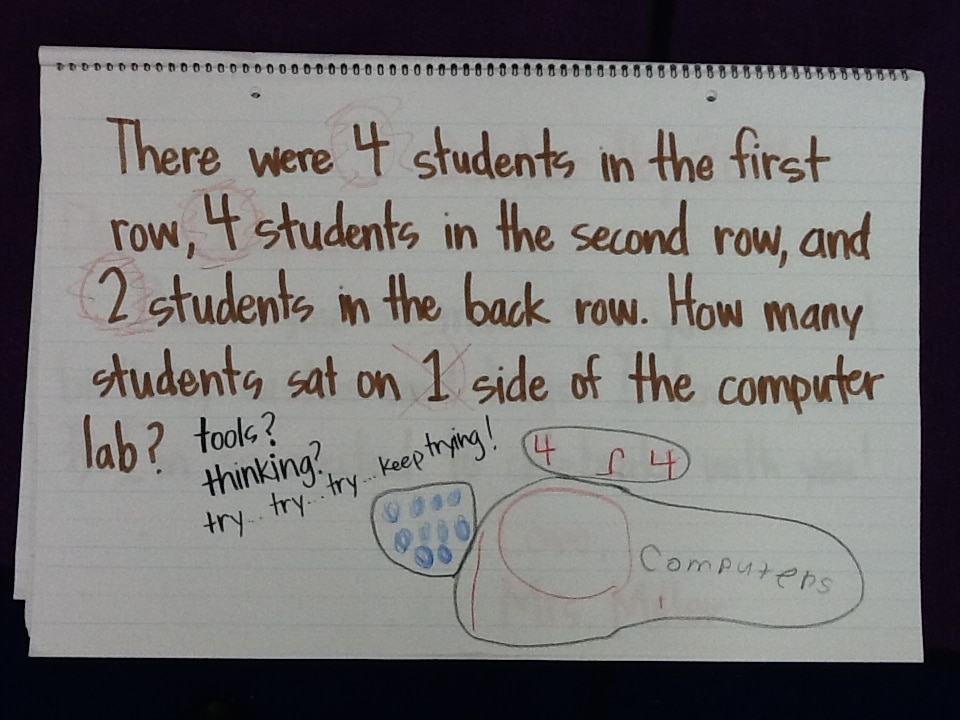 There were 4 students in the first
row, 4 students in the second row, and
2 students in the back row. How many
students sat on 1 side of the computer
lab?
tools?
thinking?
try... try... try... keep trying!
4 4
Computers